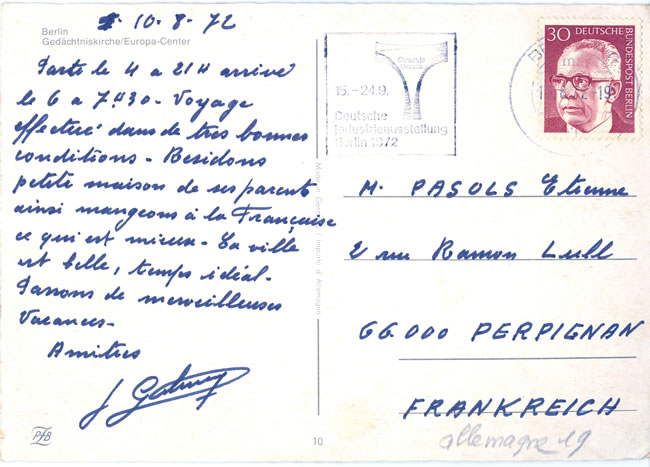 10-8-72
Berlin
Gedächtniskirche/Europa-Center
Parti le 4 a 21H arrivé
le 6 a 7H30 - Voyage
effectué dans de tres bonnes
conditions - Residons
petite maison de ses parents
ainsi mangeons à la Française
ce qui est mieux - La ville
est belle, temps idéal -
Passons de merveilleuses
Vacances -
Amitiés
PfB
10
15.-24.9.
Deutsche
Industrieausstellung
Berlin 1972
30 DEUTSCHE
BUNDESPOST BERLIN
M. PASOLS Etienne
2 rue Ramon Lull
66.000 PERPIGNAN
FRANKREICH
allemagne 19